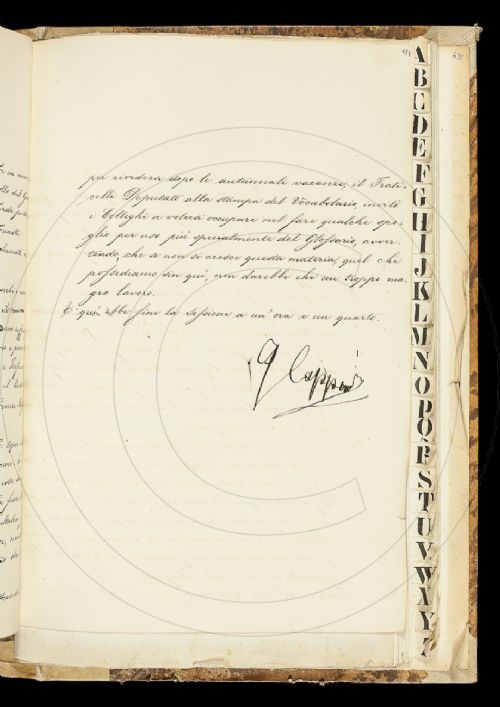 694
per rivedersi dopo le autunnali vacanze, il Frati-
celli Deputato alla stampa del Vocabolario, invitò
i Colleghi a volersi occupare nel fare qualche spo-
glio per uso più specialmente del Glossario, avver-
tendo, che se non si cresce questa materia, quel che
possediamo fin quì, non darebbe che un troppo ma-
gro lavoro.
E quì ebbe fine la Sessione a un' ora e un quarto.
G Capponi
A
B
C
D
E
F
G
H
I
J
K
L
M
N
O
P
Q
R
S
T
U
V
W
X
Y
Z